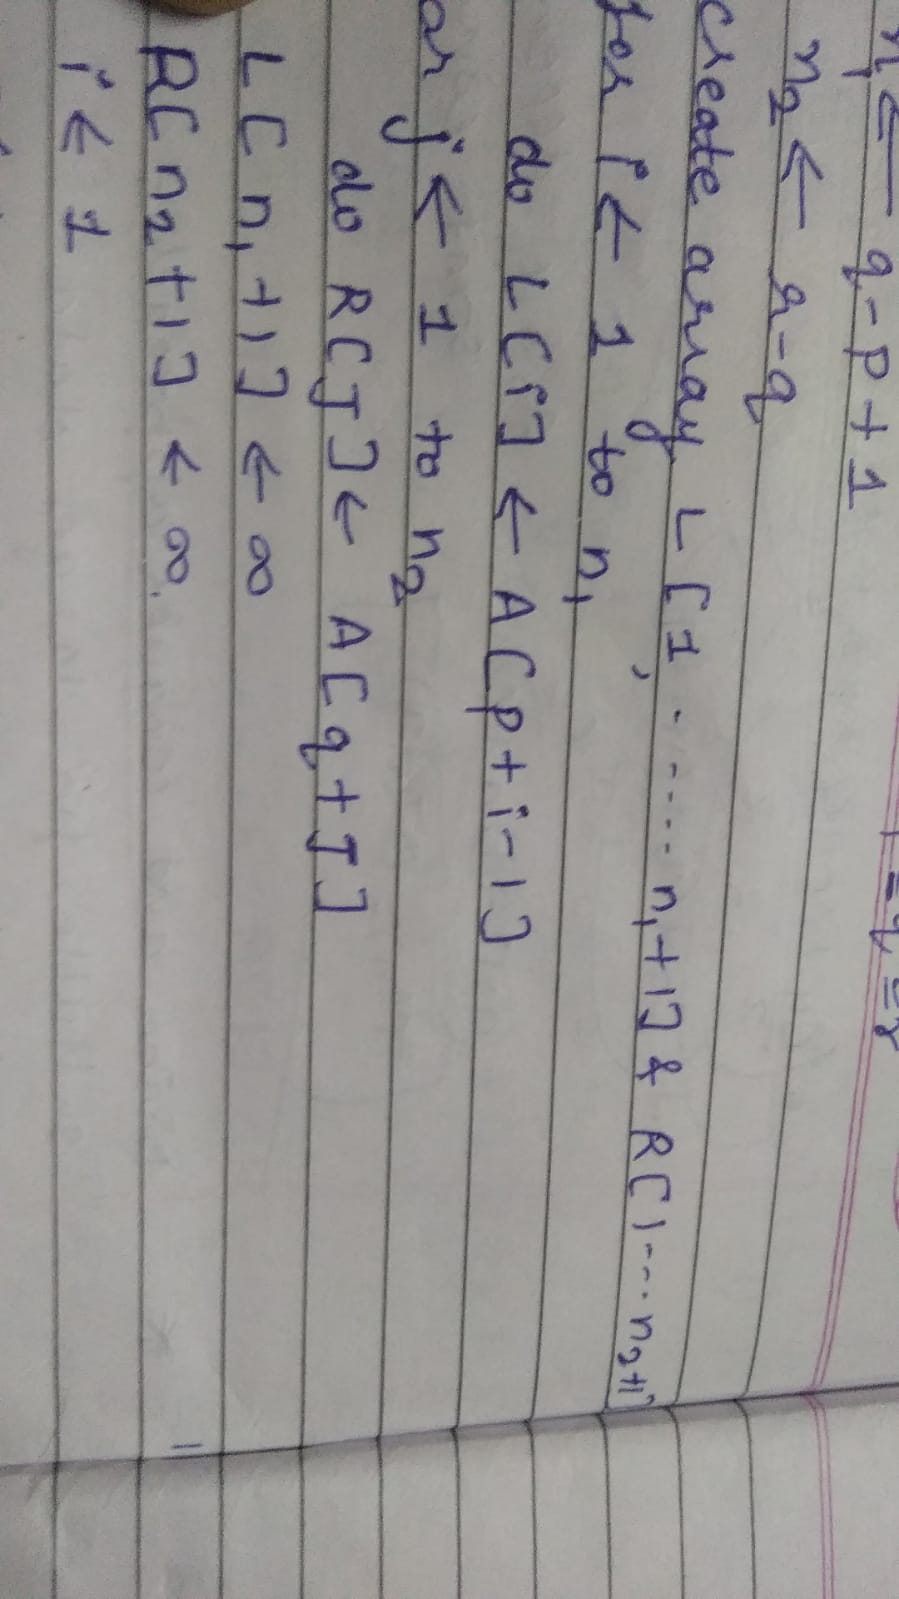 = q = r
n₁ ← q - p + 1
n₂ ← r - q
create array L [1, . ..... n₁+1] & R[1--- n₂+1]
for i ← 1 to n₁
do L[i] ← A[p+i-1]
or j ← 1 to n₂
do R[J] ← A[q+J]
L[n₁+1] ← ∞
R[n₂+1] ← ∞.
i ← 1